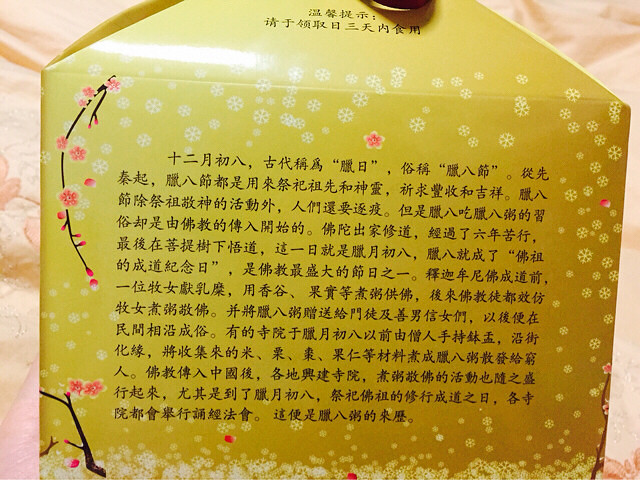 温馨提示：
请于领取日三天内食用
十二月初八，古代稱爲“臘日”，俗稱“臘八節”。從先
秦起，臘八節都是用來祭祀祖先和神靈，祈求豐收和吉祥。臘八
節除祭祖敬神的活動外，人們還要逐疫。但是臘八吃臘八粥的習
俗却是由佛教的傳入開始的。佛陀出家修道，經過了六年苦行，
最後在菩提樹下悟道，這一日就是臘月初八，臘八就成了“佛祖
的成道紀念日”，是佛教最盛大的節日之一。釋迦牟尼佛成道前，
一位牧女獻乳糜，用香谷、果實等煮粥供佛，後來佛教徒都效仿
牧女煮粥敬佛。并將臘八粥贈送給門徒及善男信女們，以後便在
民間相沿成俗。有的寺院于臘月初八以前由僧人手持鉢盂，沿街
化緣，將收集來的米、栗、棗、果仁等材料煮成臘八粥散發給窮
人。佛教傳入中國後，各地興建寺院，煮粥敬佛的活動也隨之盛
行起來，尤其是到了臘月初八，祭祀佛祖的修行成道之日，各寺
院都會舉行誦經法會。這便是臘八粥的來歷。